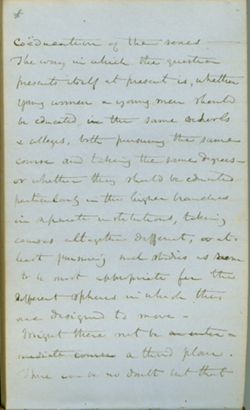 Coëducation of the sexes.
The way in which the question
presents itself at present is, whether
young women & young men should
be educated, in the same schools
& colleges, both pursuing the same
course and taking the same degrees -
or whether they should be educated
particularly in the higher branches
in separate institutions, taking
courses altogether different, or at
least pursuing such studies as seem
to be most appropriate for the
different spheres in which they
are designed to move -
Might there not be an inter-
mediate course a third plan.
There can be no doubt but that